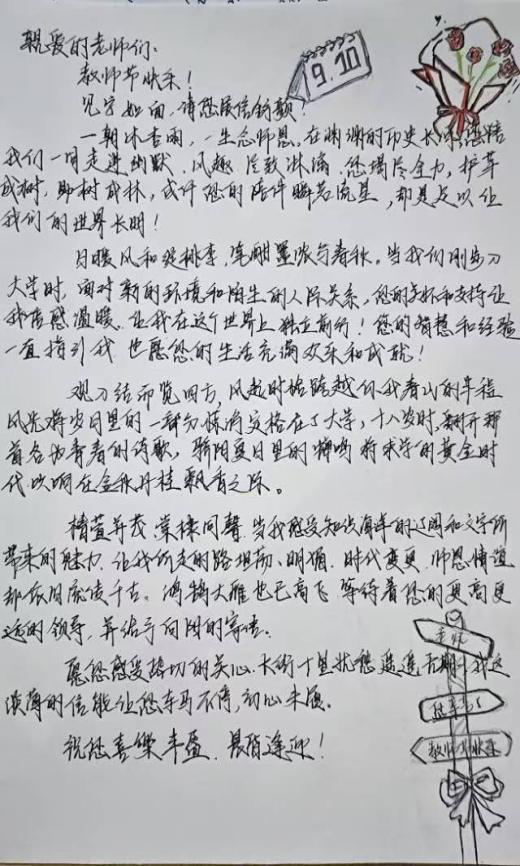 亲爱的老师们：
9.10
教师节快乐！
见字如面，请您展信舒颜！
一朝沐杏雨，一生念师恩。在渊渊的历史长河，您陪
我们一同走进幽默、风趣、尽致淋漓。您竭尽全力，护草
成树，助树成林，或许您的陪伴瞬若流星，都是足以让
我们的世界长明！
日暖风和绽桃李，笔酣墨浓写春秋。当我们刚步入
大学时，面对新的环境和陌生的人际关系，您的关怀和支持让
我倍感温暖，让我在这个世界上独立前行！您的智慧和经验
一直指引我，也愿您的生活充满欢乐和成就！
观 而览四方，风起时 跨越你我春山的车程
风光将岁日里的一部分 定格在了大学，十八岁时，翻开那
首名为青春的诗歌，骄阳夏日里的蝉鸣将求学的黄金时
代吹响在金秋丹桂飘香之际。
椿萱并茂，棠棣同馨，当我感受知识海洋的辽阔和文字所
带来的魅力，让我所走的路坦荡、明确，时代变更，师恩情谊
都依旧 千古。鸿鹄大雁也已高飞，等待着您的更高更
远的领导，并给予 的寄语。
愿您感受热切的关心，长街十里扰您遥遥无期，我这
淡薄的信能让您车马不停，初心未质。
祝您喜乐丰盈，最 逢迎！
老师
教师节快乐